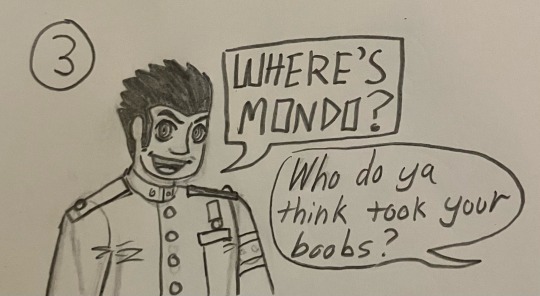 3
WHERE'S
MONDO?
Who do ya
think took your
boobs?